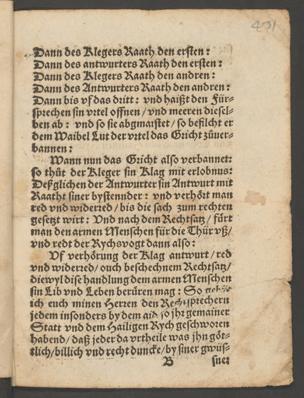 Dann des Klegers Raath den ersten:
Dann des antwurters Raath den ersten:
Dann des Klegers Raath den andren:
Dann des Antwurters Raath den andren:
Dann bis vf das dritt: vnd haißt den Für-
sprechen sin vrtel offnen / vnd meeren diesel-
ben ab: vnd so sie abgmaistet / so befilcht er
dem Waibel Lut der vrtel das Gricht zůuer-
bannen:
Wann nun das Gricht also verbannet:
so thůt der Kleger sin Klag mit erlobnus:
Deßglichen der Antwurter sin Antwurt mit
Raaht siner bystennder: vnd verhört man
red vnd widerred / bis die sach zum rechten
gesetzt wirt: Vnd nach dem Rechtsatz / fürt
man den armen Menschen für die Thür vß /
vnd redt der Rychsvogt dann also:
Vf verhörung der Klag antwurt / red
vnd widerred / ouch beschechnem Rechtsatz /
diewyl dise handlung dem armen Menschen
sin Lib vnd Leben berüren mag: So
ich euch minen Herren den Rechtsprechern
jedem insonders by dem aid so jhr gemainer
Statt vnd dem Hailigen Rych geschworen
habend / daß jeder da vrtheile was jhn göt-
lich / billich vnd recht duncke / by siner gwüs-
B siner